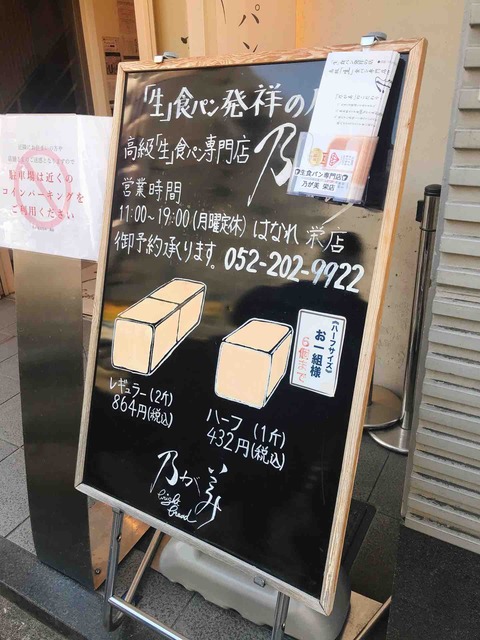 「生」食パン発祥の
高級「生」食パン専門店
乃
営業時間
11:00〜19:00(月曜定休) はなれ 栄店
御予約承ります。052-202-9922
レギュラー(2斤)
864円(税込)
ハーフ(1斤)
432円(税込)
《ハーフサイズ》
お一組様
6個まで
乃が美
生食パン専門店
乃が美 栄店
駐車場は近くの
コインパーキングを
ご利用ください
パン